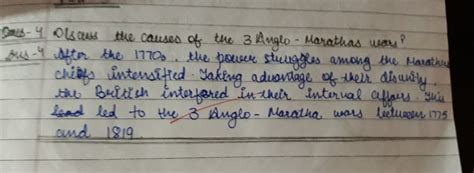 Ques-4 Discuss the causes of the 3 Anglo-Marathas wars?
Ans-4 After the 1770s, the power struggles among the Maratha
chiefs intensified. Taking advantage of their disunity
the British interfered in their interval affairs. This
lead led to the 3 Anglo-Maratha wars between 1775
and 1819.